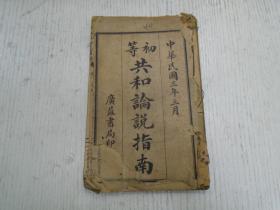 中華民國三年三月
初等
共和論說指南
廣益書局印